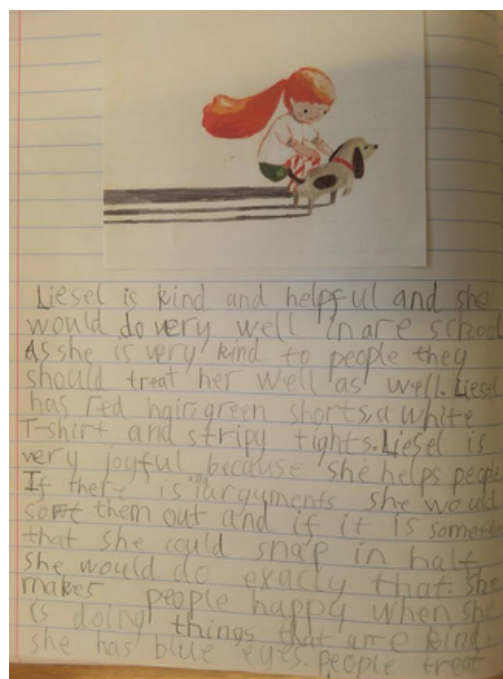 Liesel is kind and helpful and she
would do very well in are school
As she is very kind to people they
should treat her well as well. Liesel
has red hair, green shorts, a white
T-shirt and stripy tights. Liesel is
very joyful because she helps people
If there is an arguments she would
sort them out and if it is
that she could snap in half,
she would do exacly that. She
makes people happy when she
is doing things that are kind.
she has blue eyes. people treat